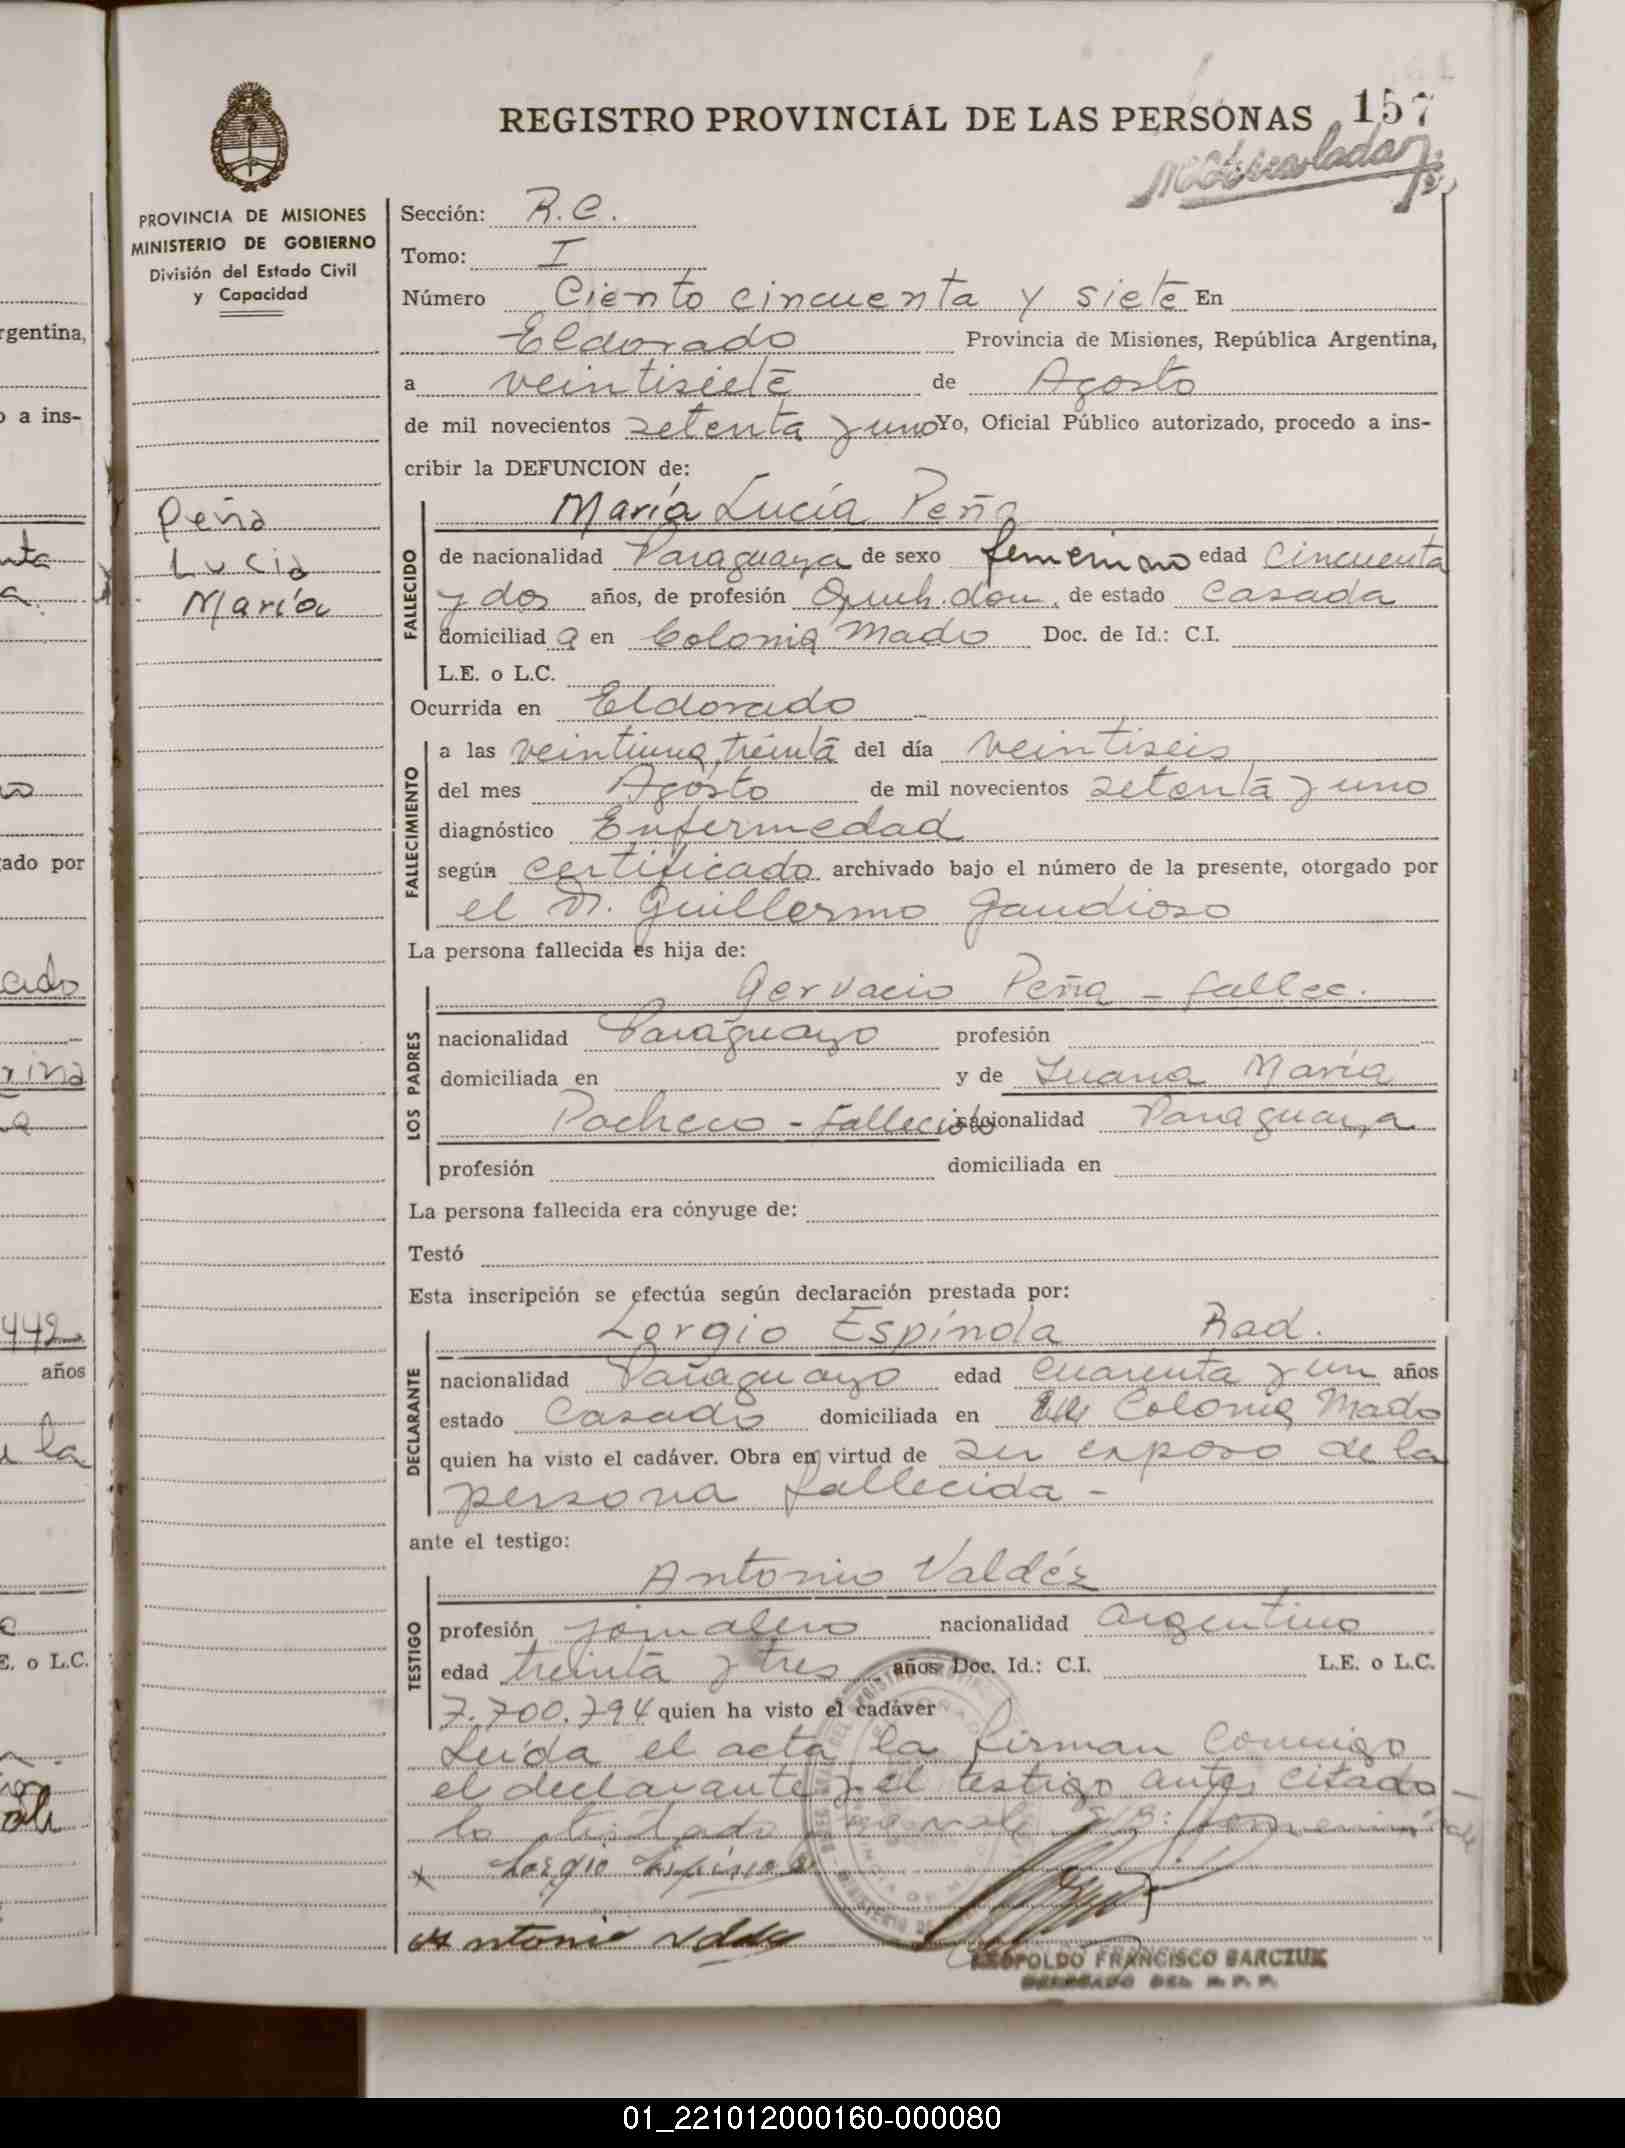 REGISTRO PROVINCIAL DE LAS PERSONAS 157
PROVINCIA DE MISIONES
MINISTERIO DE GOBIERNO
División del Estado Civil
y Capacidad
Sección: R.C.
Tomo: I
Número Ciento cincuenta y siete En
Eldorado Provincia de Misiones, República Argentina,
a veintisiete de Agosto
de mil novecientos setenta y uno Yo, Oficial Público autorizado, procedo a ins-
cribir la DEFUNCION de:
Peña
Lucia
María
FALLECIDO
María Lucía Peña
de nacionalidad Paraguaya de sexo femenino edad Cincuenta
y dos años, de profesión de estado Casada
domiciliad a en Colonia Mado Doc. de Id.: C.I.
L.E. o L.C.
Ocurrida en Eldorado
FALLECIMIENTO
a las veintiuna, treinta del día veintiseis
del mes Agosto de mil novecientos setenta y uno
diagnóstico Enfermedad
según certificado archivado bajo el número de la presente, otorgado por
el Dr. Guillermo Gaudioso
La persona fallecida es hija de:
LOS PADRES
Gervacio Peña - fallec.
nacionalidad Paraguayo profesión
domiciliada en y de Juana María
Pacheco - fallecida nacionalidad Paraguaya
profesión domiciliada en
La persona fallecida era cónyuge de:
Testó
Esta inscripción se efectúa según declaración prestada por:
DECLARANTE
Lorgio Espínola Rad.
nacionalidad Paraguayo edad cuarenta y un años
estado Casado domiciliada en Colonia Mado
quien ha visto el cadáver. Obra en virtud de ser esposo de la
persona fallecida -
ante el testigo:
TESTIGO
Antonio Valdéz
profesión jornalero nacionalidad argentino
edad treinta y tres años Doc. Id.: C.I. L.E. o L.C.
7.700.794 quien ha visto el cadáver
Leída el acta la firman conmigo
el declarante y el testigo antes citado -
lo testado no vale S/R: femenino vale
x Lorgio Espínola
Antonio
LEOPOLDO FRANCISCO BARCZUK
DELEGADO DEL R. P. P.
rgentina,
o a ins-
ado por
442
años
la
E. o L.C.
01_221012000160-000080